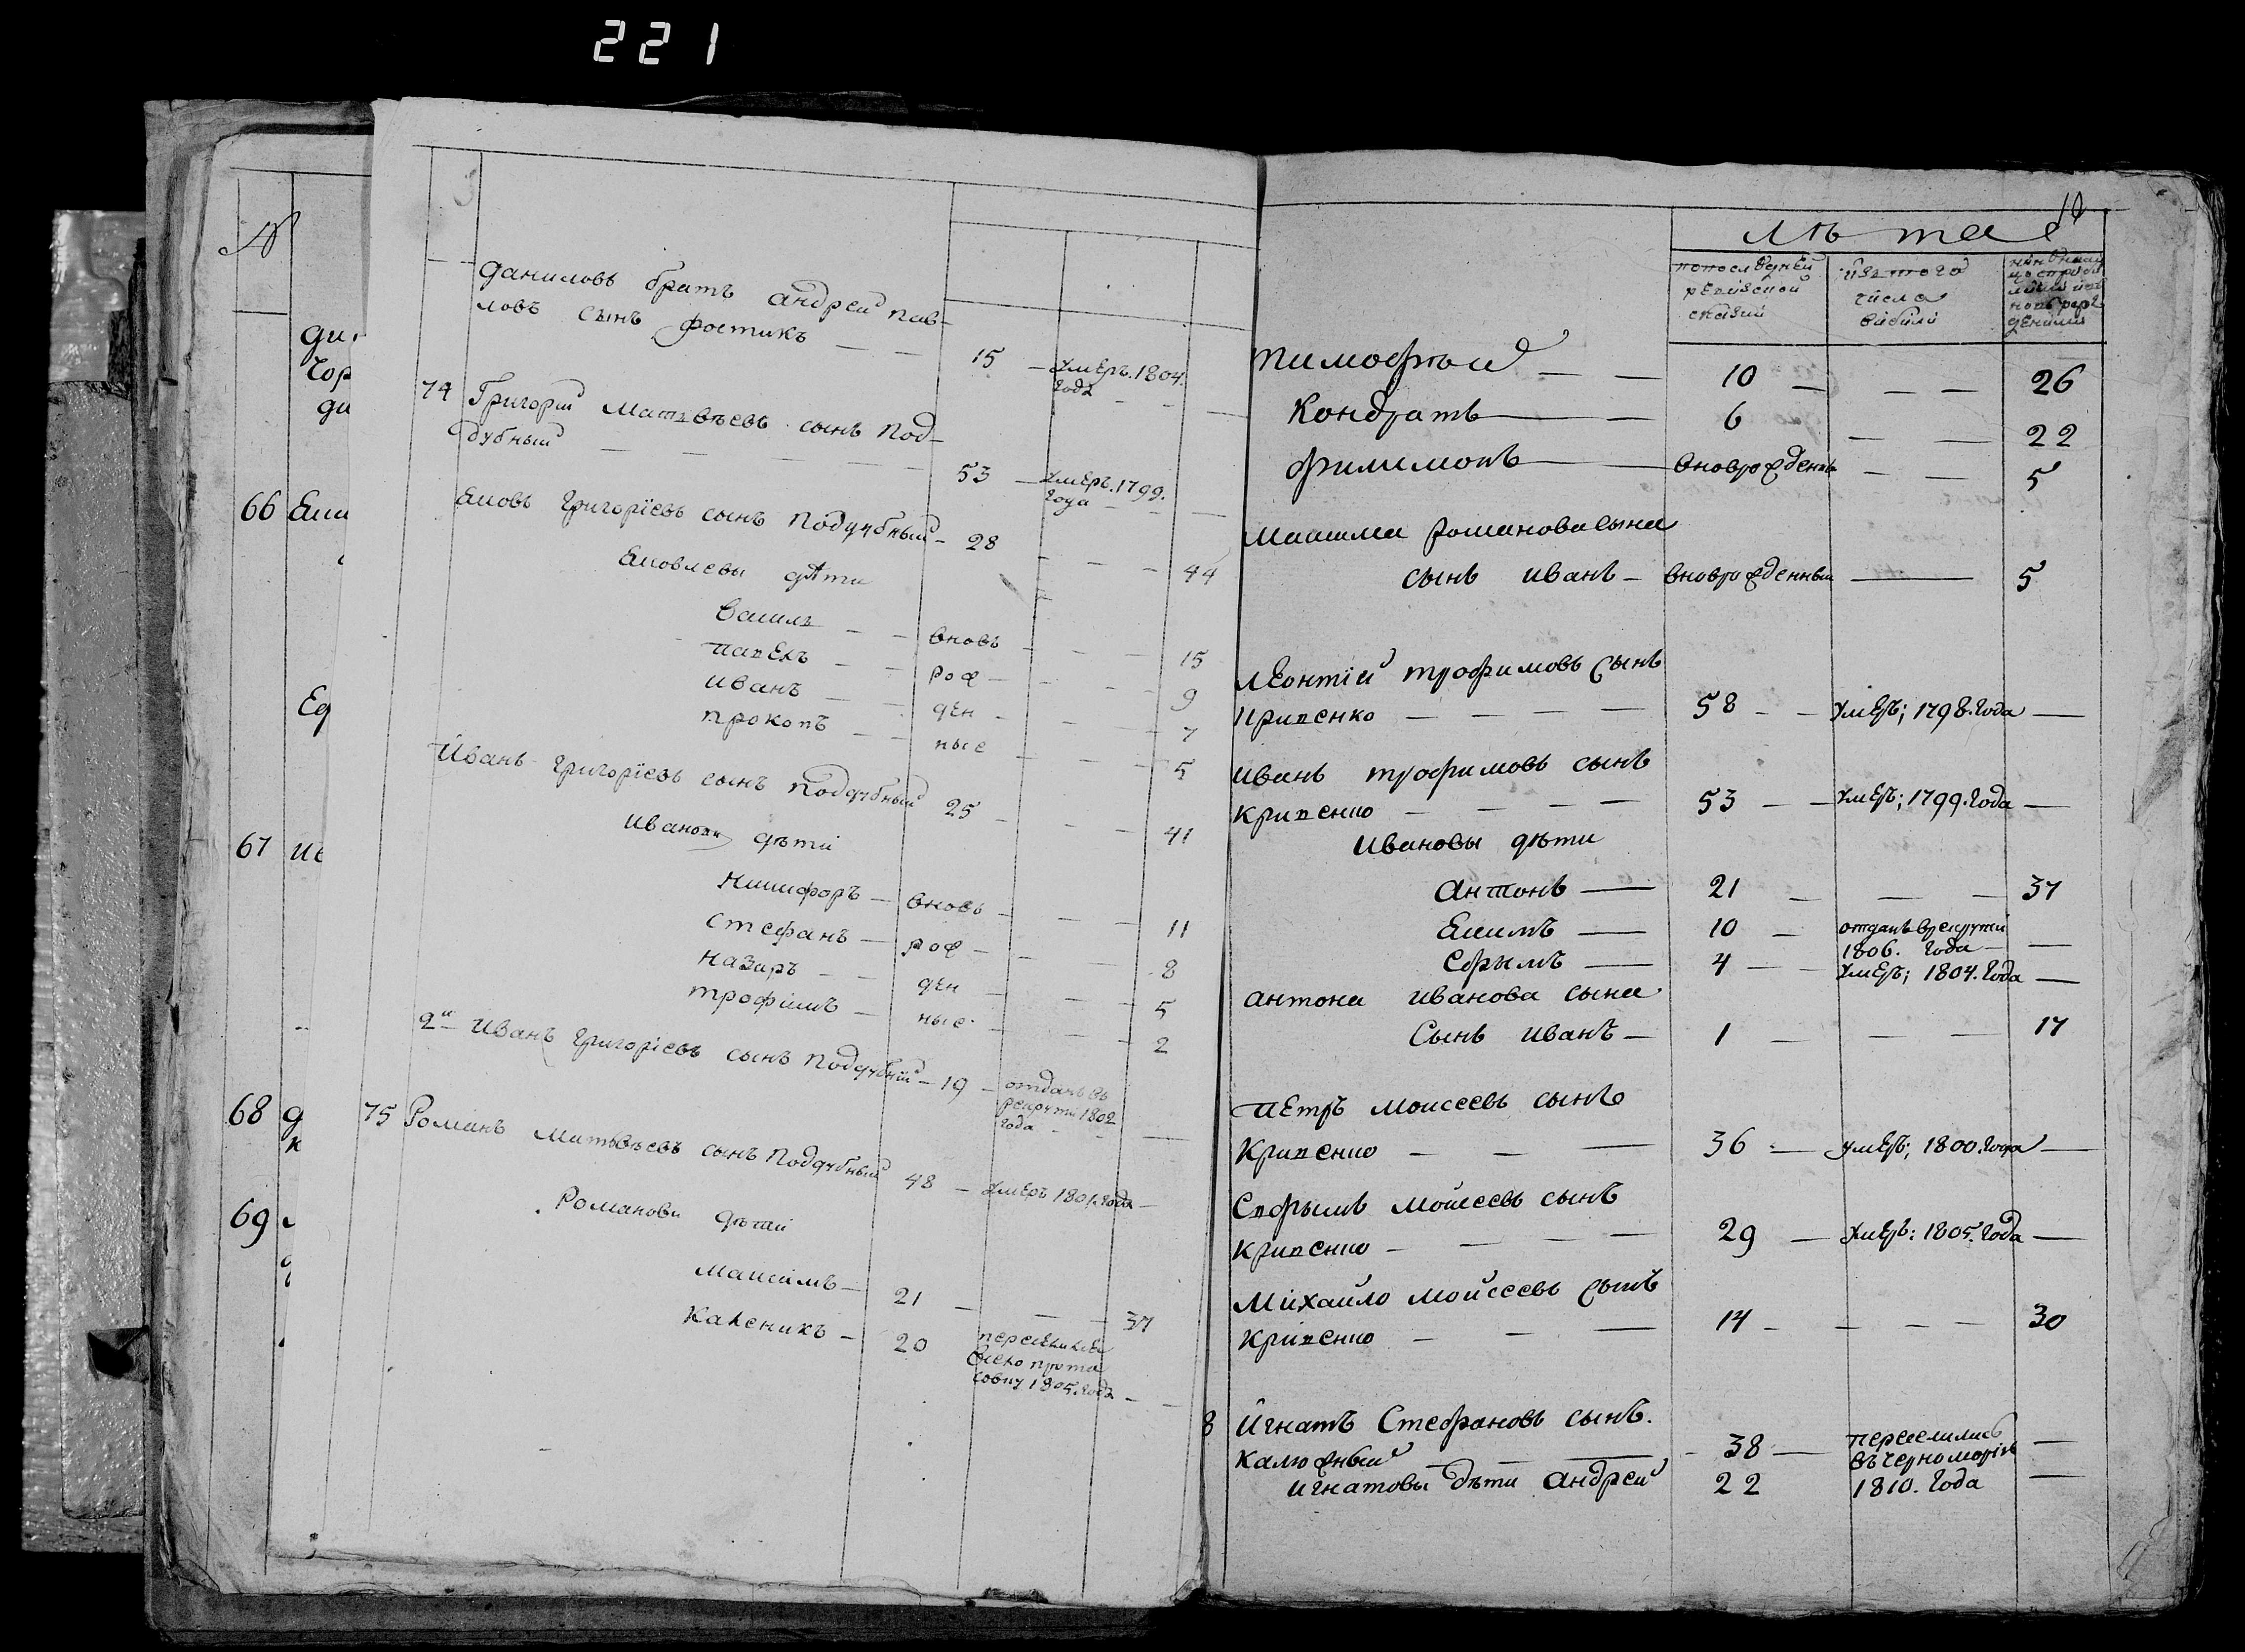 221
№
ди
Чор
ди
66 Еки
Ед
67 Ив
68 д
к
69
Даниловъ братъ андрей пав-
ловъ сынъ фостикъ — — 15 — умеръ. 1804.
года — —
74 Григорий Матвѣевъ сынъ Под-
дубный — — — — — 53 — умеръ. 1799.
года — — —
Яковъ Григорїевъ сынъ Поддубный — 28 — — — 44
Яковлевы дѣти
Василь — — вновь — — — 15
павелъ — — рож — — — 9
иванъ — — ден — — 7
прокопъ — — ные — — — 5
Иванъ Григорїевъ сынъ Поддубный 25 — — — 41
Ивановы дѣти
Никифоръ — вновь — — — 11
Стефанъ — рож — — — 8
Назаръ — — ден — — — 5
трофимъ — ные — — 2
2й Иванъ Григорїевъ сынъ Поддубный — 19 — отданъ въ
рекруты 1802
года — — —
75 Романъ Матвѣевъ сынъ Поддубный 48 — умеръ 1801. года —
Романовы дѣти
Максимъ — 21 — — — 37
Каленикъ — 20
1805. года — —
10
лѣта
попослѣдней
ревизской
сказки
изъ того
числа
выбыли
тимофѣй — — 10 — — — 26
Кондратъ — — 6 — — 22
филимонъ — — вноврожденъ — — 5
Максима романова сына
сынъ иванъ — вноврожденный — 5
леонтїй трофимовъ сынъ
Крипенко — — — — 58 — — умеръ; 1798. года —
иванъ трофимовъ сынъ
Крипенко — — — — 53 — — умеръ; 1799. года —
Ивановы дѣти
антонъ — 21 — — — 37
Екимъ — 10 — отданъ врекруты
1806. года — —
Ефымъ — 4 — — умеръ; 1804. года —
антона иванова сына
Сынъ иванъ — 1 — — — 17
петръ моисеевъ сынъ
Крипенко — — — 36 — умеръ; 1800. года —
Ефрымъ мойсеевъ сынъ
Крипенко — — — — 29 — умеръ: 1805. года —
Михайло мойсеевъ сынъ
Крипенко — — — 14 — — — — 30
8 Игнатъ Стефановъ сынъ.
Калюжный — — — 38 — переселились —
въ черноморїю
игнатовы дѣти андрей 22 1810. года —